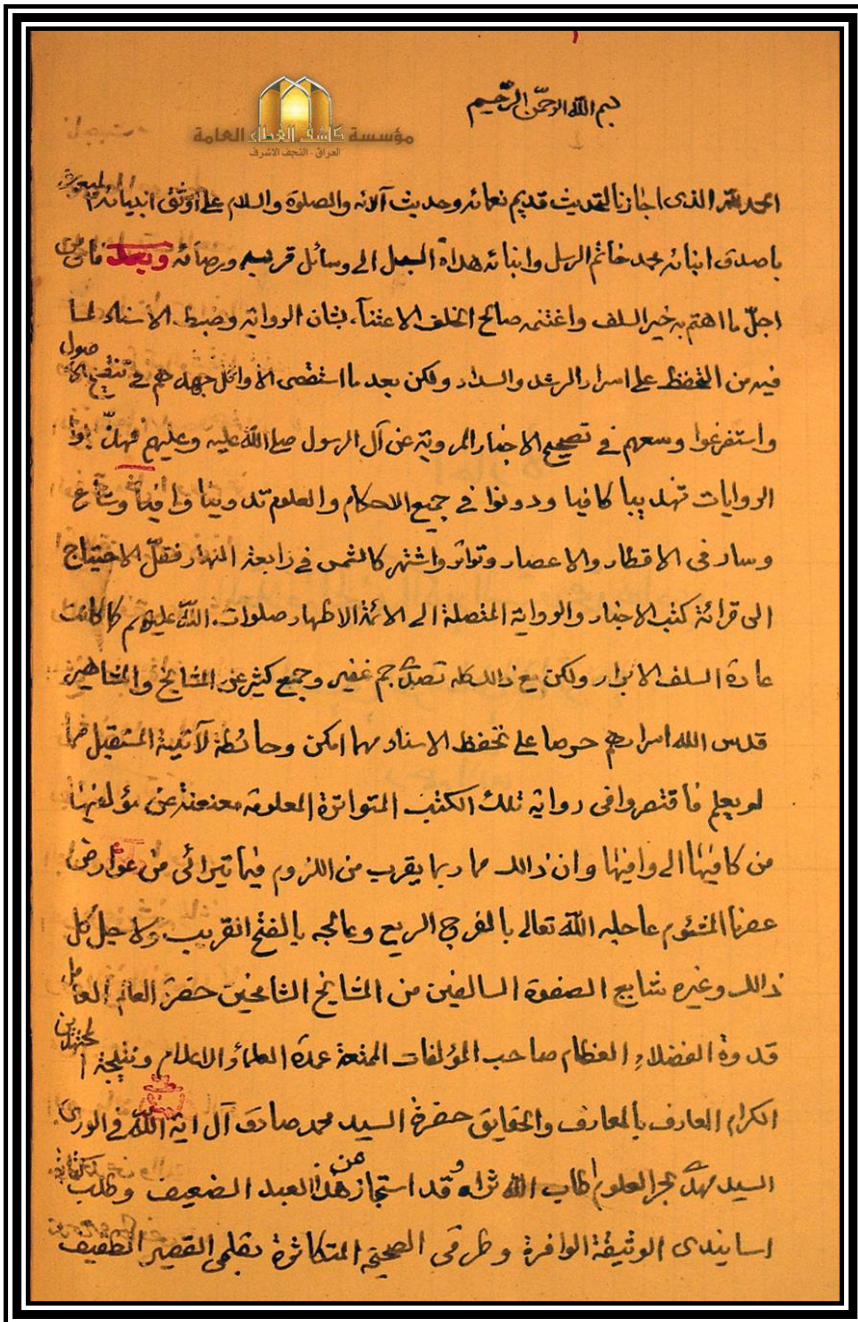 بسم الله الرحمن الرحيم
مؤسسة كاشف الغطاء العامة
العراق - النجف الاشرف
الحمد لله الذى اجازنا لتحديث قديم نعمائه وحديث آلائه والصلوة والسلام على اوثق انبيائه
باصدق انبائه محمد خاتم الرسل وابنائه هداة السبل الى وسائل قربه ورضائه وبعد فان من
اجلّ ما اهتم به خير السلف واغتنمه صالح الخلف الاعتناء بشان الرواية وضبط الاسناد لما
فيه من التحفظ على اسرار الرشد والسداد ولكن بعد ما استقصى الاوائل جهدهم فى تنقيح الاصول
واستفرغوا وسعهم فى تصحيح الاخبار المروية عن آل الرسول صلى الله عليه وعليهم فهذّبوا
الروايات تهذيبا كافيا ودونوا فى جميع الاحكام والعلوم تدوينا وافيا وشاع
وسار فى الاقطار والاعصار وتواتر واشتهر كالشمس فى رابعة النهار فقلّ الاحتياج
الى قرائة كتب الاخبار والرواية المتصلة الى الائمة الاطهار صلوات الله عليهم كما كانت
عادة السلف الابرار ولكن مع ذالك كله تصدى جم غفير وجمع كثير من المشايخ والمشاهير
قدس الله اسرارهم حرصا على تحفظ الاسناد مهما امكن وحائطة لآتية المستقبل مما
لم يعلم فاقتصروا فى رواية تلك الكتب المتواترة المعلومة معنعنة عن مؤلفيها
من كافيها الى وافيها وان ذالك مما ربما يقرب من اللزوم فيما تيرائى من عوارض
عصرنا المشئوم عاجله الله تعالى بالفرج الريع وعالجه بالفتح القريب ولاجل كل
ذالك وغيره شايع الصفوة السالفين من المشايخ الشامخين حضرة العالم العامل
قدوة الفضلاء العظام صاحب المؤلفات الممتعة عمدة العلماء والاعلام ونتيجة المجتهدين
الكرام العارف بالمعارف والحقايق حضرة السيد محمد صادق آل آية الله فى الورى
السيد مهدى بحر العلوم اطاب الله ثراه وقد استجاز من هذا العبد الضعيف وطلب
اسانيدى الوثيقة الوافرة وطرقى الصحيحة المتكاثرة بقلمى القصير الطفيف